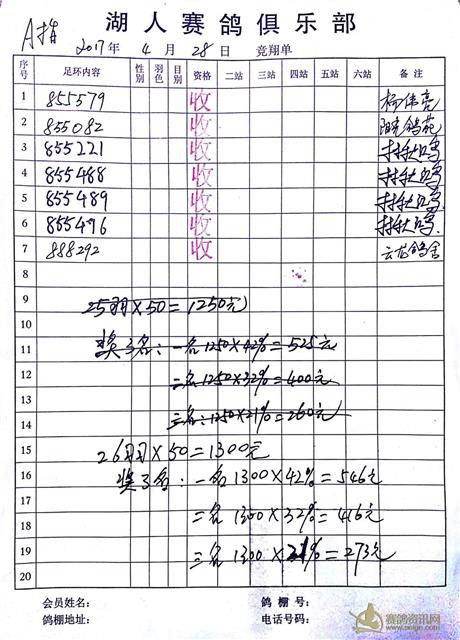 湖人赛鸽俱乐部
A指
2017年 4月 28日 竞翔单
序号 足环内容 性别 羽色 目别 资格 二站 三站 四站 五站 六站 备注
1 855579 收
2 855082 收 鸽苑
3 855221 收
4 855488 收
5 855489 收
6 855496 收
7 888292 收 云龙鸽舍
8
9 25羽×50=1250元
10
11 奖3名:一名1250×42%=525元
12 二名1250×32%=400元
13
14 三名:1250×21%=260元
15 26羽×50=1300元
16 奖3名:一名1300×42%=546元
17
18 二名1300×32%=416元
19 三名1300×21%=273元
20
会员姓名: 鸽棚号:
鸽棚地址: 电话号码:
赛鸽资讯网